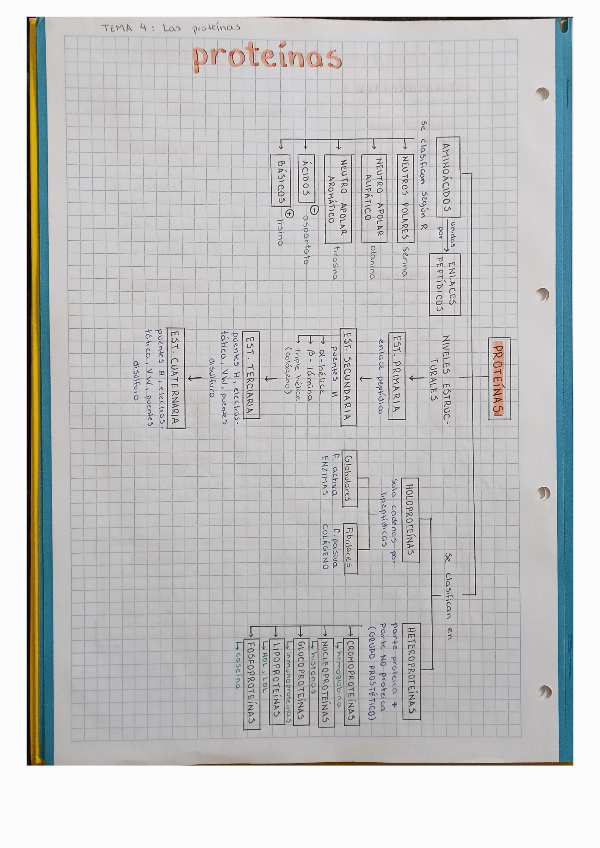 TEMA 4: Las proteínas
proteínas
PROTEÍNAS
AMINOÁCIDOS
unidos
por
ENLACES
PEPTÍDICOS
se clasifican según R
NEUTROS POLARES
serina
NEUTRO APOLAR
ALIFÁTICO
alanina
NEUTRO APOLAR
AROMÁTICO
tirosina
ÁCIDOS
⊖
aspartato
BÁSICOS
⊕
lisina
NIVELES ESTRUC-
TURALES
EST. PRIMARIA
enlace peptídico
EST. SECUNDARIA
puentes H
α-hélice
β-lámina
triple hélice
(colágeno)
EST. TERCIARIA
puentes H, electros-
tática, V.W, puentes
disulfuro
EST. CUATERNARIA
puentes H, electros-
tática, V.W, puentes
disulfuro
se clasifican en
HOLOPROTEÍNAS
Solo cadenas po-
lipeptídicas
Globulares
F. activa
ENZIMAS
Fibrilares
F. pasiva
COLÁGENO
HETEROPROTEÍNAS
parte proteica +
parte NO proteica
(GRUPO PROSTÉTICO)
CROMOPROTEÍNAS
hemoglobina
NUCLEOPROTEÍNAS
histonas
GLUCOPROTEÍNAS
inmunoproteínas
LIPOPROTEÍNAS
HDL, LDL
FOSFOPROTEÍNAS
caseína